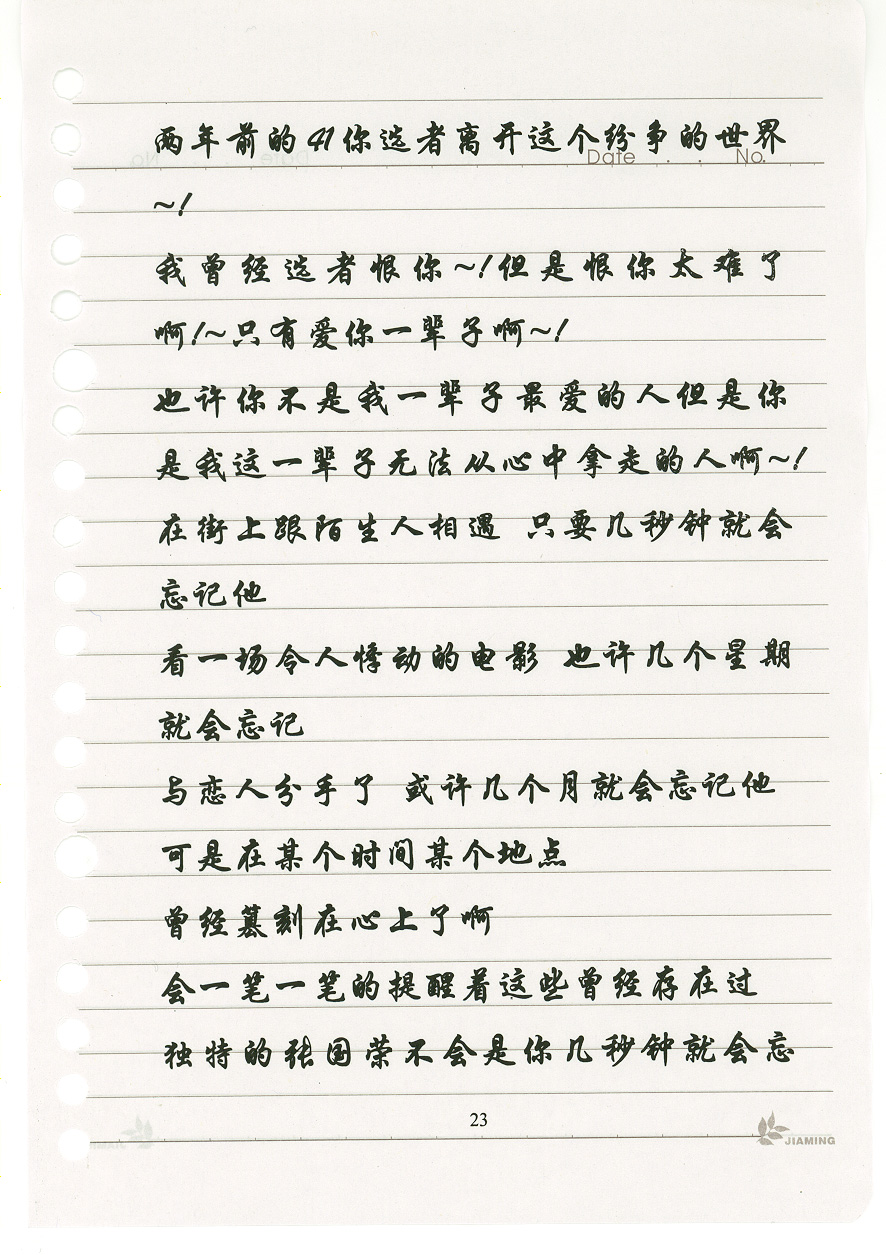 两年前的41你选者离开这个纷争的世界
Date . . No.
~!
我曾经选者恨你~!但是恨你太难了
啊!~只有爱你一辈子啊~!
也许你不是我一辈子最爱的人但是你
是我这一辈子无法从心中拿走的人啊~!
在街上跟陌生人相遇 只要几秒钟就会
忘记他
看一场令人悸动的电影 也许几个星期
就会忘记
与恋人分手了 或许几个月就会忘记他
可是在某个时间某个地点
曾经篆刻在心上了啊
会一笔一笔的提醒着这些曾经存在过
独特的张国荣不会是你几秒钟就会忘
23
JIAMING